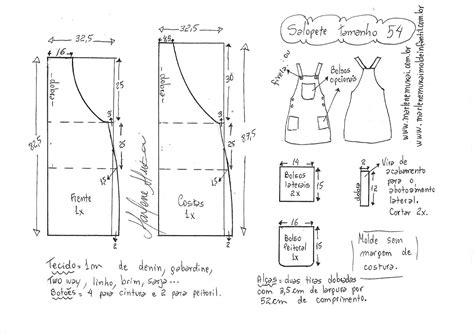 Salopete Tamanho 54
www.marlenemukai.com.br
www.marlenemukaimoldeinfantil.com.br
32,5
16
dobra
25
82,5
9
20
1,5
Frente
1x
2
32,5
dobra
30
87,5
9
20
1,5
Costas
1x
2
Marlene Mukai
frente ou
Bolsos
opcionais
14
Bolsos
laterais
2x
15
2
12
Vira de
acabamento
para o
abotoamento
lateral.
Cortar 2x.
16
Bolso
peitoral
1x
15
Molde sem
margem de
costura.
Tecido = 1m de denin, gabardine,
Two way, linho, brim, sarja...
Botões = 4 para cintura e 2 para peitoril.
Alças = duas tiras dobradas
com 3,5cm de largura por
52cm de comprimento.